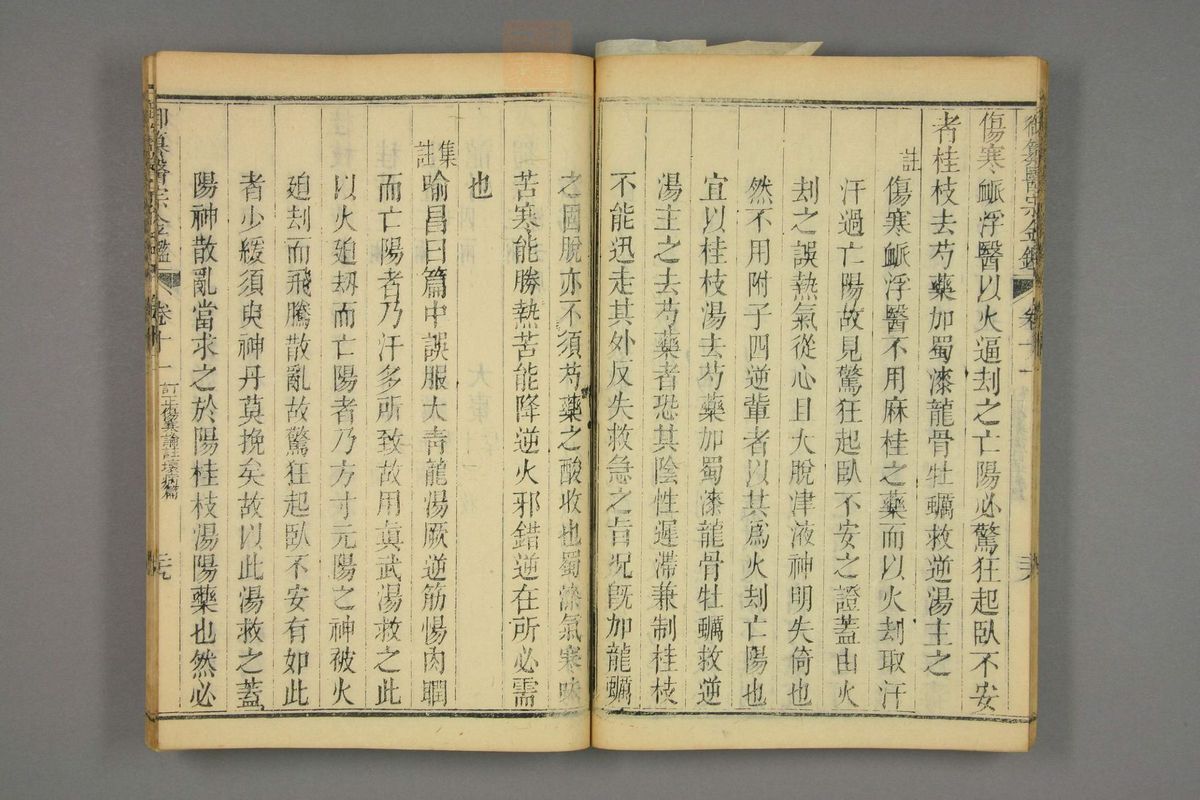 御纂醫宗金鑑 卷十一
傷寒衇浮醫以火逼刦之亡陽必驚狂起臥不安
者桂枝去芍藥加蜀漆龍骨牡蠣救逆湯主之
註傷寒衇浮醫不用麻桂之藥而以火刦取汗
汗過亡陽故見驚狂起臥不安之證蓋由火
刦之誤熱氣從心且大脫津液神明失倚也
然不用附子四逆輩者以其爲火刦亡陽也
宜以桂枝湯去芍藥加蜀漆龍骨牡蠣救逆
湯主之去芍藥者恐其陰性遲滯兼制桂枝
不能迅走其外反失救急之旨况旣加龍蠣
之固脫亦不須芍藥之酸收也蜀漆氣寒味
苦寒能勝熱苦能降逆火邪錯逆在所必需
也
集註喻昌曰篇中誤服大青龍湯厥逆筋惕肉瞤
而亡陽者乃汗多所致故用真武湯救之此
以火廹刼而亡陽者乃方寸元陽之神被火
廹刦而飛騰散亂故驚狂起臥不安有如此
者少緩須臾神丹莫挽矣故以此湯救之蓋
陽神散亂當求之於陽桂枝湯陽藥也然必
御纂醫宗金鑑 卷十一 訂正傷寒論註壞病篇